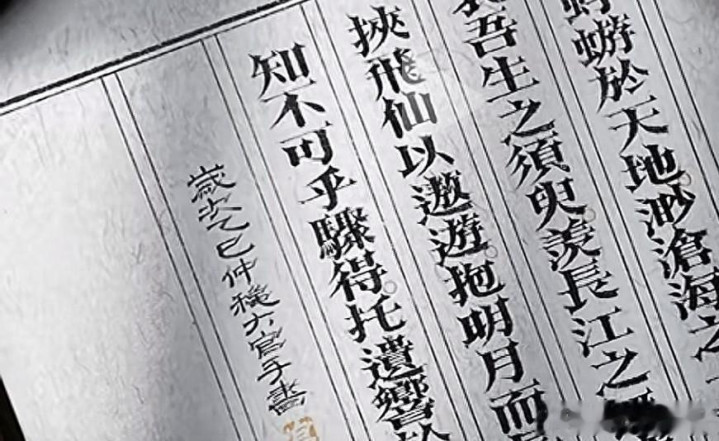 蜉蝣於天地。渺滄海之
吾生之須臾。羨長江之
挾飛仙以遨遊。抱明月而
知不可乎驟得。托遺響於
歲次乙巳仲穐六官手書